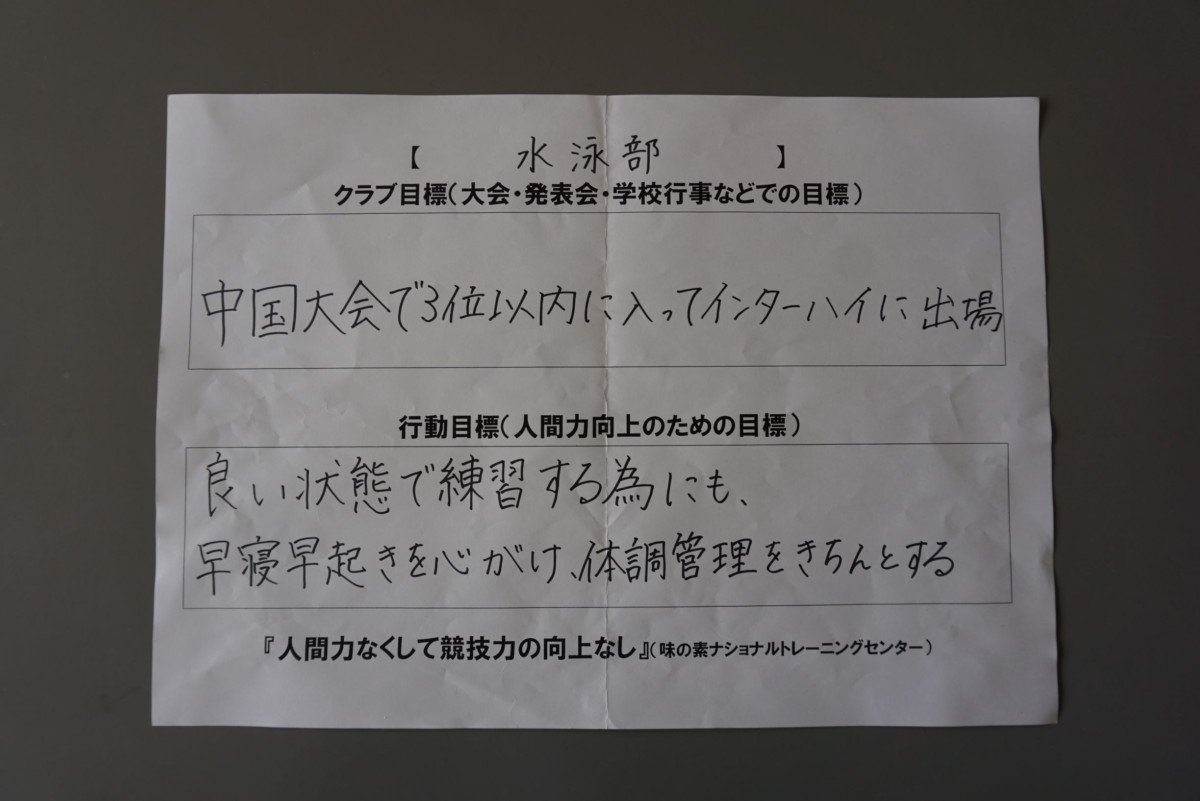 【 水泳部 】
クラブ目標(大会・発表会・学校行事などでの目標)
中国大会で3位以内に入ってインターハイに出場
行動目標(人間力向上のための目標)
良い状態で練習する為にも、
早寝早起きを心がけ、体調管理をきちんとする
『人間力なくして競技力の向上なし』(味の素ナショナルトレーニングセンター)